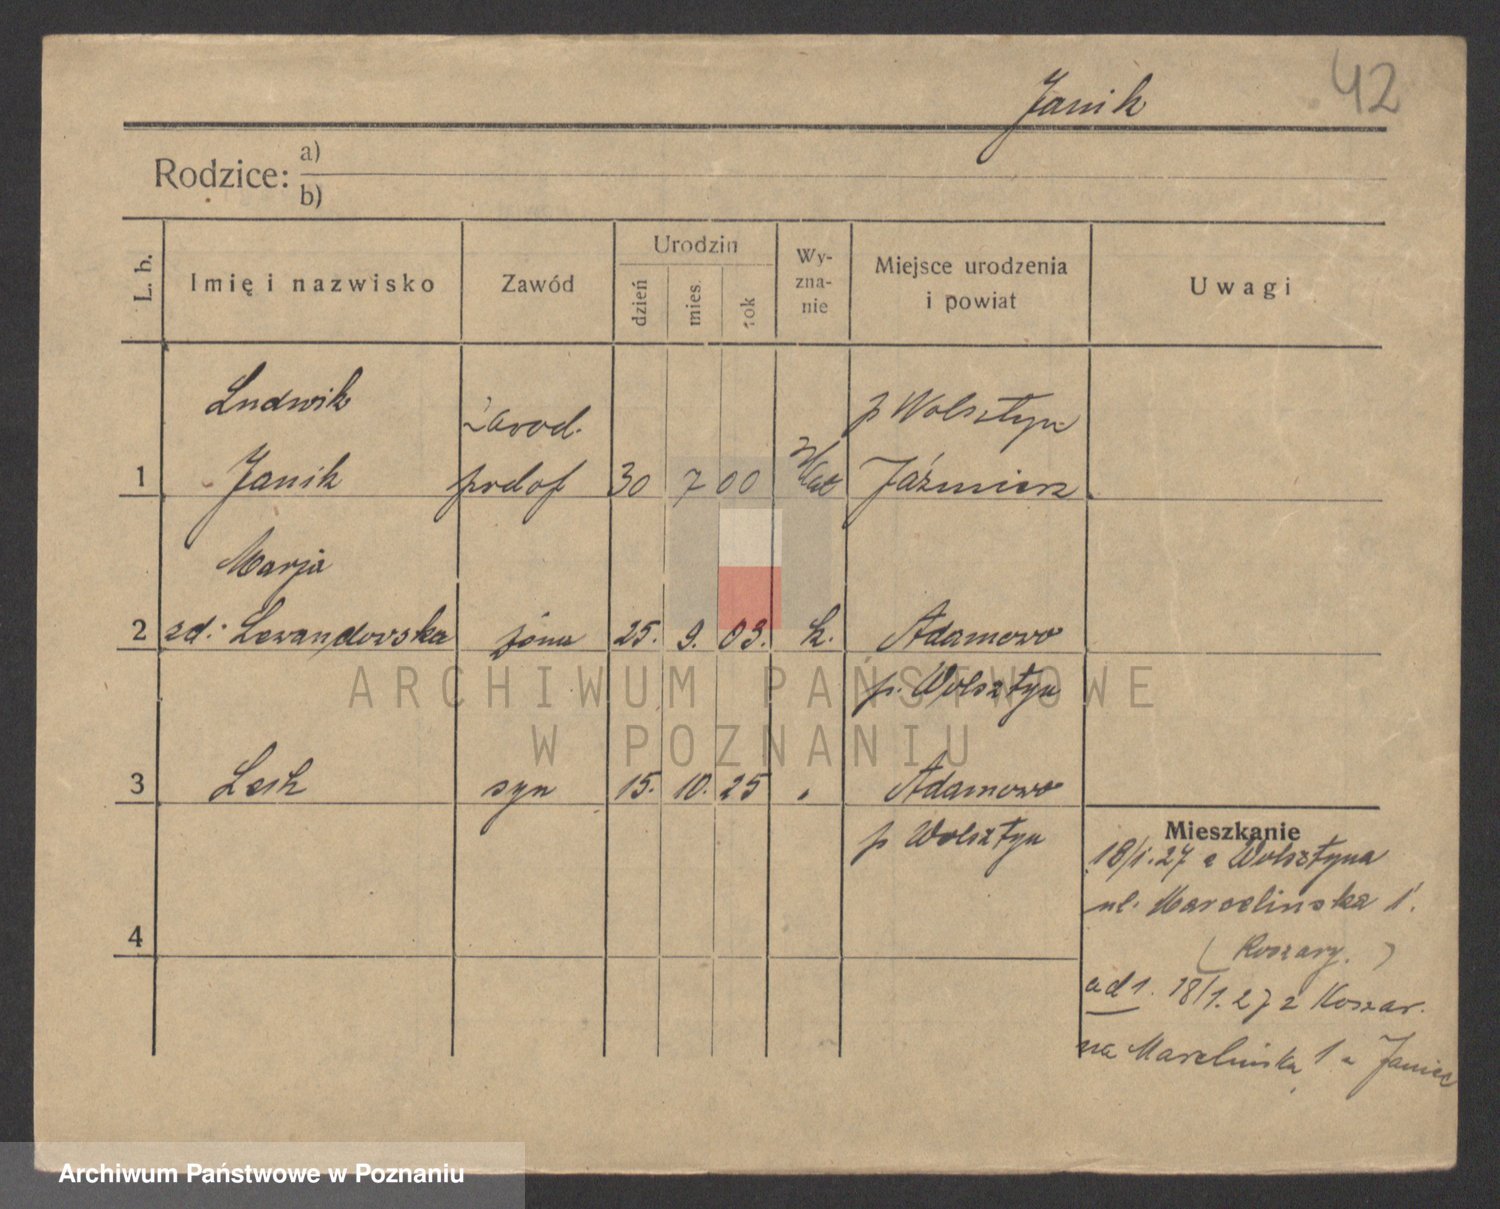 42
Janik
Rodzice: a)
b)
L. b.
Imię i nazwisko
Zawód
Urodzin
dzień
mies.
rok
Wy-
zna-
nie
Miejsce urodzenia
i powiat
Uwagi
Ludwik zawod. p Wolsztyn
1 Janik podof 30 7 00 Jaźmierz
Marja
2 zd: Lewandowska żona 25. 9. 03. k. Adamowo
p. Wolsztyn
3 Lech syn 15. 10. 25 Adamowo
p Wolsztyn
4
Mieszkanie
18/1.27 z Wolsztyna
ul. Marcelinska 1.
(Koszary.)
ad 1. 18/1.27 z Koszar.
na Marcelinska 1 u Janiec
ARCHIWUM PAŃSTWOWE
W POZNANIU
Archiwum Państwowe w Poznaniu